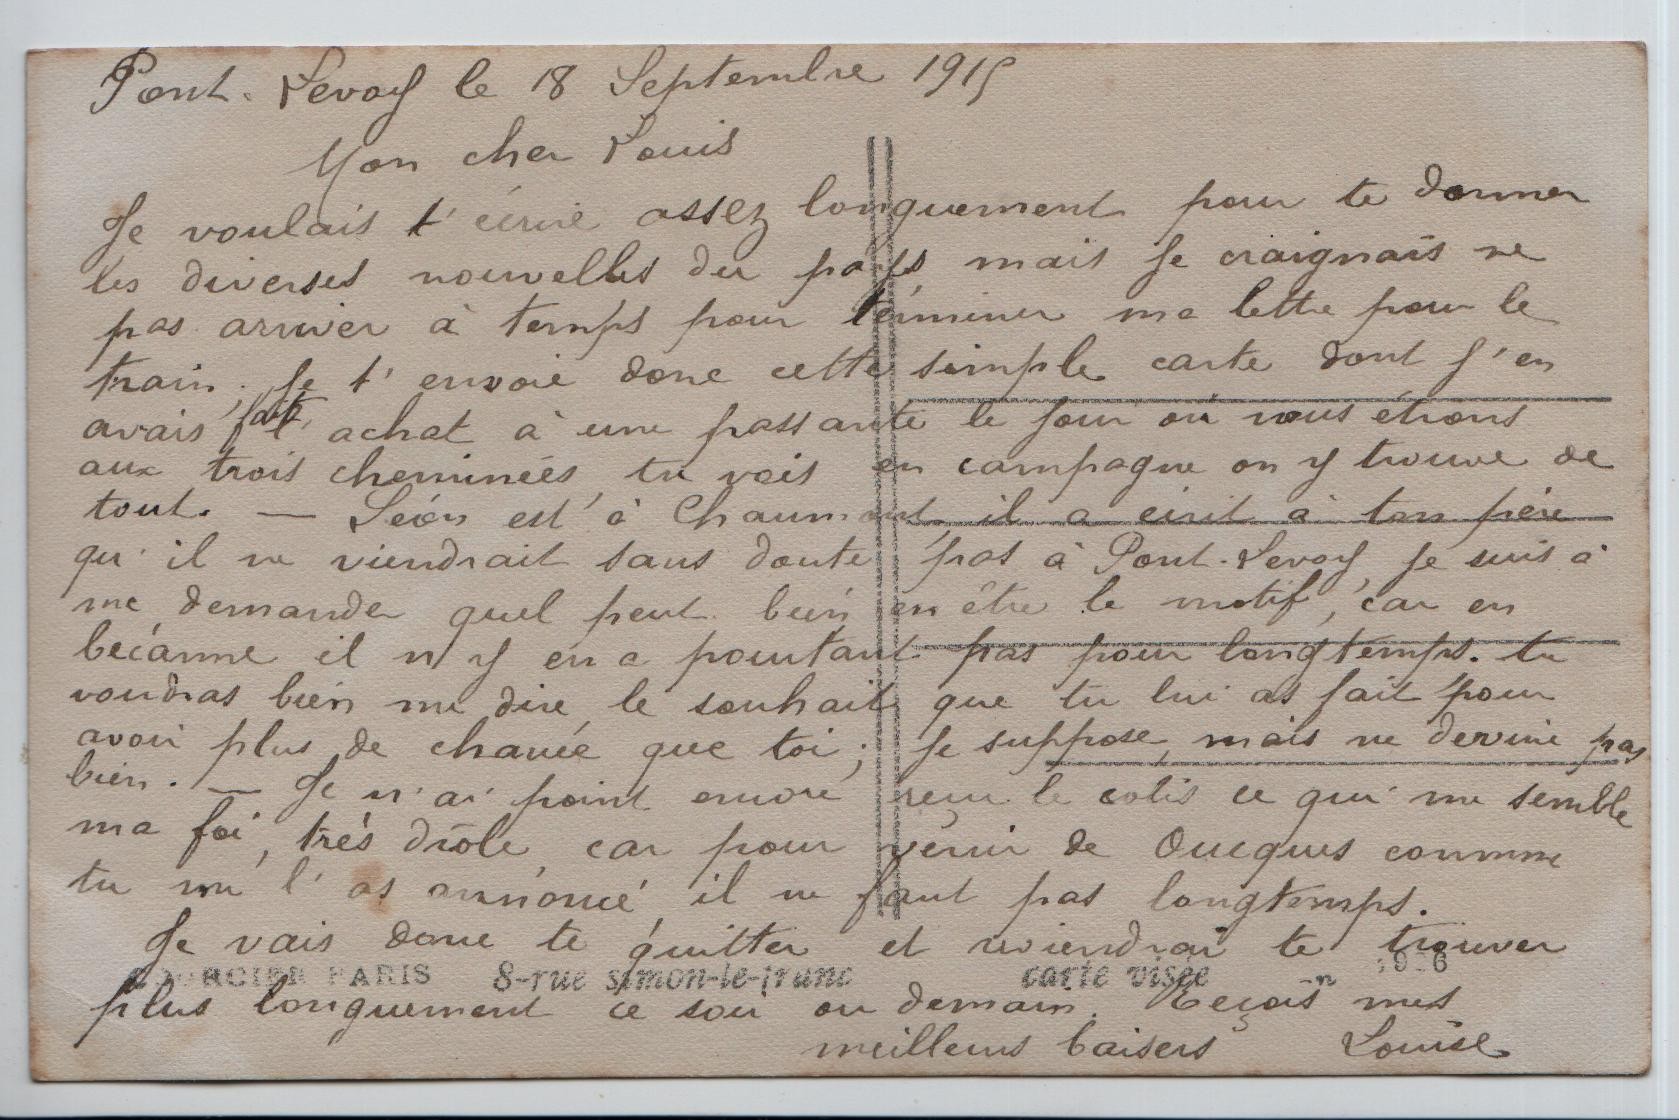 Pont-Levoy le 18 Septembre 1915
Mon cher Louis
Je voulais t'écrire assez longuement pour te donner
les diverses nouvelles du pays mais je craignais ne
pas arriver à temps pour terminer ma lettre pour le
train. Je t'envoie donc cette simple carte dont j'en
avais fait achat à une passante le jour où nous étions
aux trois cheminées, tu vois en campagne on y trouve de
tout. — Léon est à Chaumont, il a écrit à ton père
qu'il ne viendrait sans doute pas à Pont-Levoy, je suis à
me demander quel peut bien en être le motif, car en
bécanne il n'y en a pourtant pas pour longtemps. tu
voudras bien me dire le souhait que tu lui as fait pour
avoir plus de chance que toi; je suppose, mais ne devine pas
bien. — Je n'ai point encore reçu le colis ce qui me semble
ma foi, très drôle, car pour venir de Ouques comme
tu me l'as annoncé, il ne faut pas longtemps.
Je vais donc te quitter et reviendrai te trouver
PARIS 8-rue simon-le-franc carte visée n
plus longuement ce soir ou demain. Reçois mes
meilleurs baisers Louise